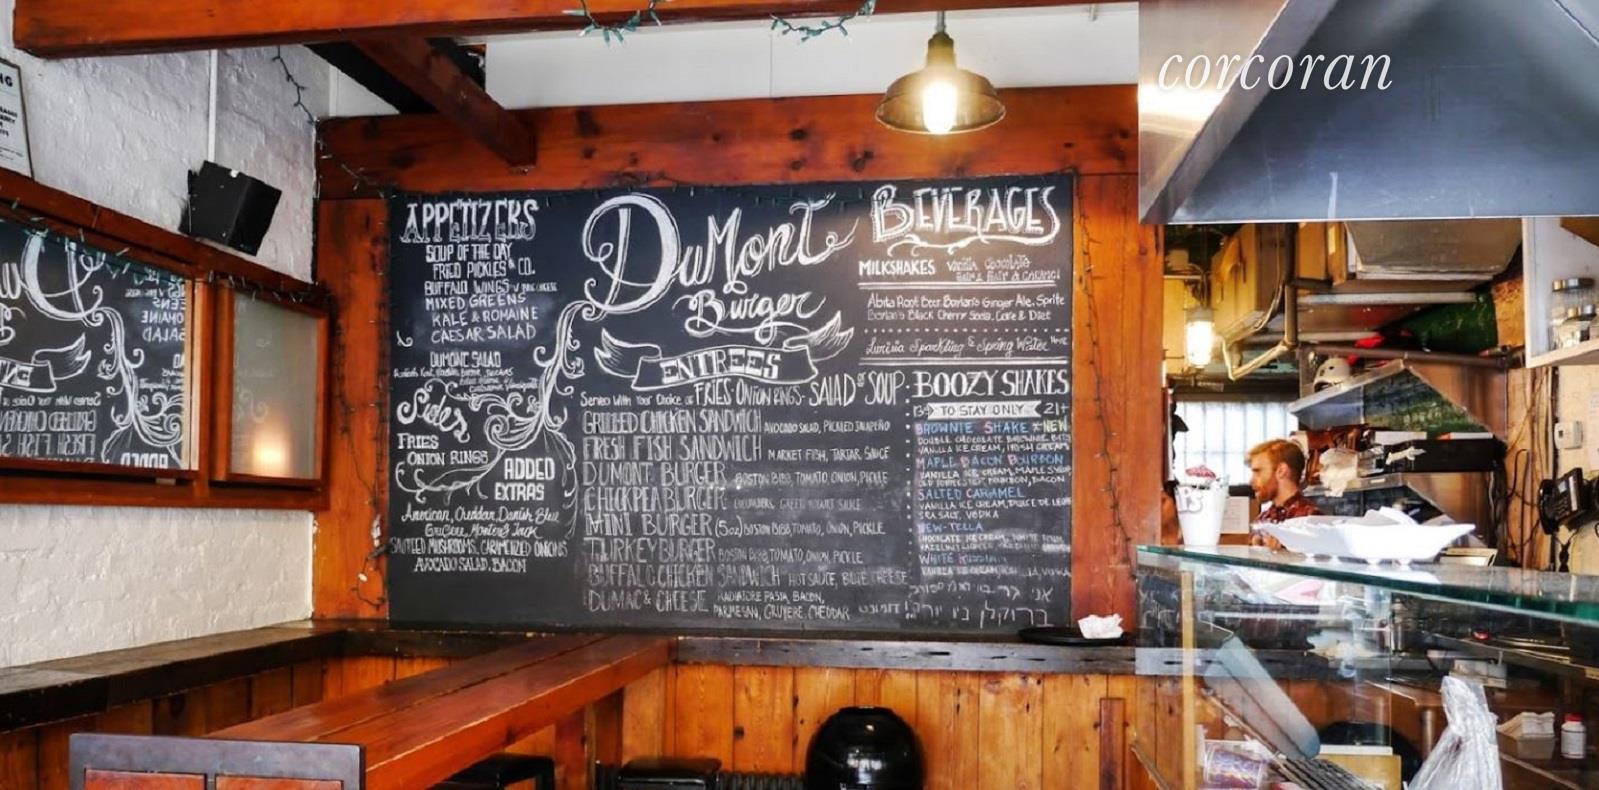 corcoran
APPETIZERS
SOUP OF THE DAY
FRIED PICKLES & CO.
BUFFALO WINGS
MIXED GREENS
KALE & ROMAINE
CAESAR SALAD
DUMONT SALAD
Sides
FRIES
ONION RINGS
ADDED
EXTRAS
American, Cheddar, Danish Bleu
Gruyere, Monterey Jack
SAUTEED MUSHROOMS, CARAMELIZED ONIONS
AVOCADO SALAD, BACON
DuMont
Burger
ENTREES
Served With Your Choice of FRIES · ONION RINGS · SALAD OR SOUP
GRILLED CHICKEN SANDWICH AVOCADO SALAD, PICKLED JALAPEÑO
FRESH FISH SANDWICH MARKET FISH, TARTAR SAUCE
DUMONT BURGER BOSTON BIBB, TOMATO, ONION, PICKLE
CHICKPEA BURGER
MINI BURGER (5oz) BOSTON BIBB, TOMATO, ONION, PICKLE
TURKEY BURGER BOSTON BIBB, TOMATO, ONION, PICKLE
BUFFALO CHICKEN SANDWICH HOT SAUCE, BLUE CHEESE
DUMAC & CHEESE RADIATORE PASTA, BACON,
PARMESAN, GRUYERE, CHEDDAR
BEVERAGES
MILKSHAKES Vanilla Chocolate
Abita Root Beer, Boylan's Ginger Ale, Sprite
Boylan's Black Cherry Soda, Coke & Diet
Lurisia Sparkling & Spring Water
BOOZY SHAKES
TO STAY ONLY 21+
BROWNIE SHAKE *NEW
DOUBLE CHOCOLATE BROWNIE BITS
VANILLA ICE CREAM, IRISH CREAM
MAPLE BACON BOURBON
VANILLA ICE CREAM, MAPLE SYRUP
OLD FORRESTER BOURBON, BACON
SALTED CARAMEL
VANILLA ICE CREAM, DULCE DE LECHE
SEA SALT, VODKA
NEW-TELLA
WHITE RUSSIAN
ברוקלין ניו יורק